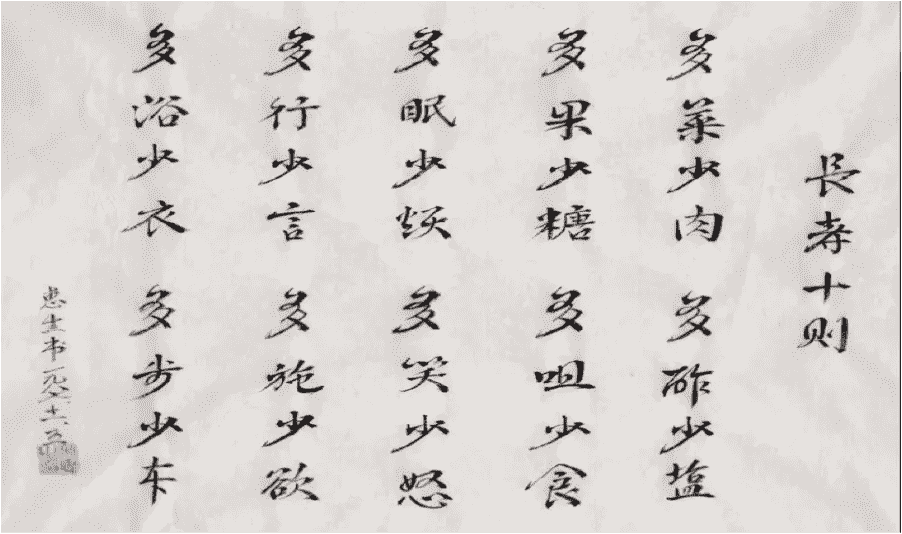 長寿十则
多菜少肉 多酢少塩
多果少糖 多咀少食
多眠少烦 多笑少怒
多行少言 多施少欲
多浴少衣 多步少车
惠生书